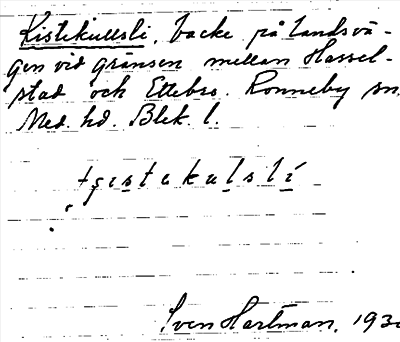 Kistekullsli, backe på landsvä-
gen vid gränsen mellan Hassel-
stad och Ettebro. Ronneby sn.
Med. hd. Blek. l.
Sven Hartman, 193